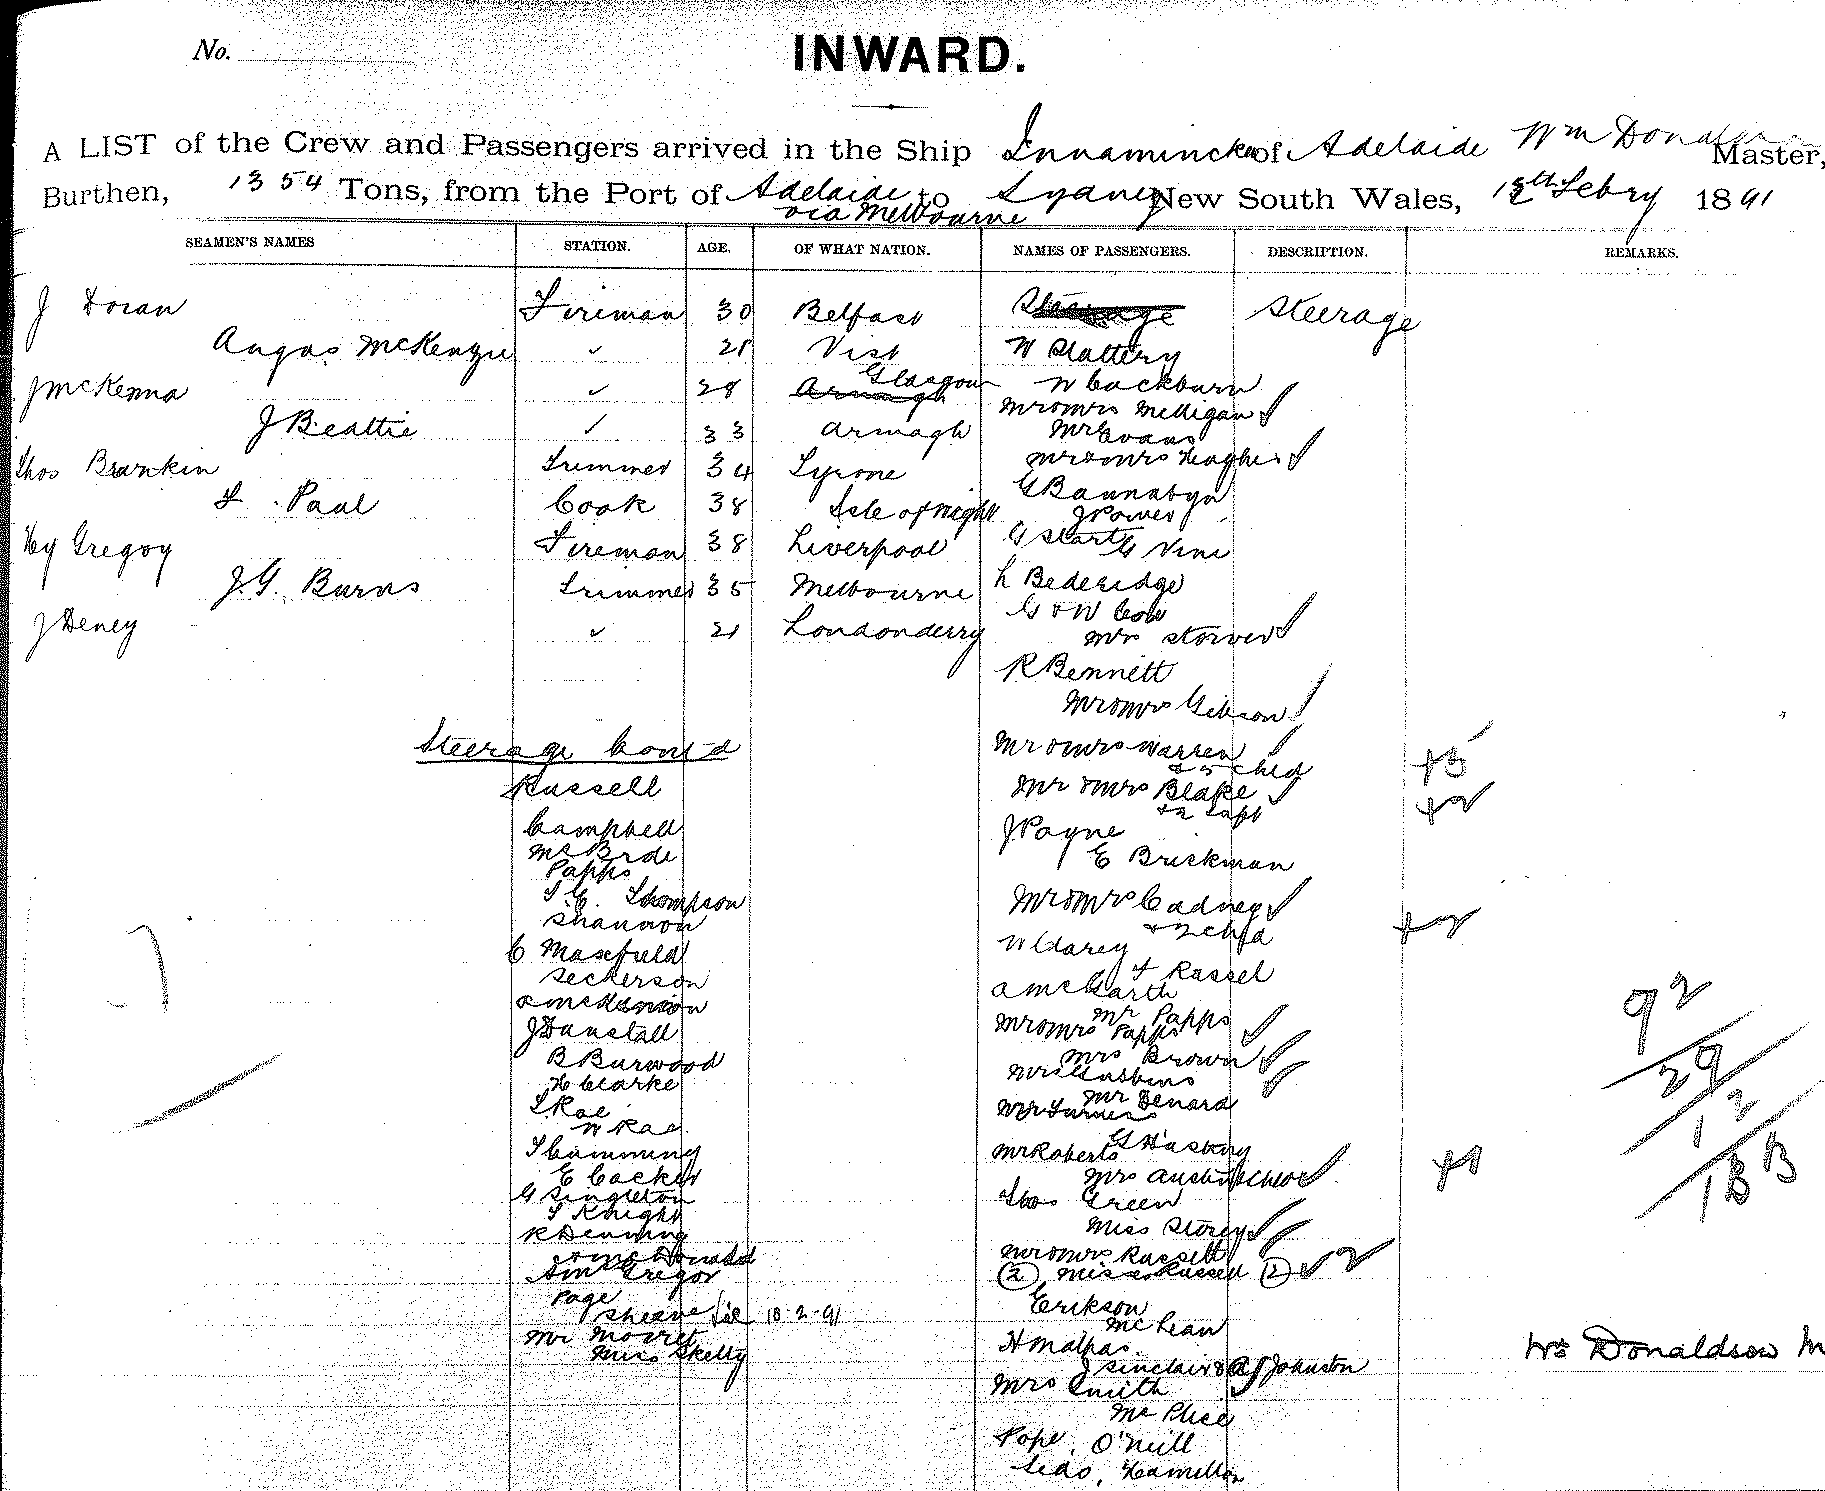 No.
INWARD.
A LIST of the Crew and Passengers arrived in the Ship Innamincka of Adelaide Wm Donaldson Master,
Burthen, 1354 Tons, from the Port of Adelaide to Sydney New South Wales, 18th Febry 1891
via Melbourne
SEAMEN'S NAMES STATION. AGE. OF WHAT NATION. NAMES OF PASSENGERS. DESCRIPTION. REMARKS.
J Doran Fireman 30 Belfast Steerage Steerage
Angus McKenzie ✓ 21 Uist W Slattery
J McKenna ✓ 28 Armagh Glasgow W Cockburn
Mr & Mrs Melligan ✓
J Beattie ✓ 33 Armagh Mr Evans
Thos Brankin Trimmer 34 Tyrone Mr & Mrs
J Paul Cook 38 Isle of Wight G
J Power
Hy Gregoy Fireman 38 Liverpool G Start G Vine
J.G. Burns Trimmer 35 Melbourne L Bederidge
G & W Cole
J Deney ✓ 21 Londonderry Mrs ✓
R Bennett
Mr & Mrs Gibson ✓
Steerage Cont'd Mr & Mrs Warren ✓
& 5 chld +5
Russell Mr & Mrs Blake ✓
& 2 +2
Campbell J Payne
McBride E Brickman
Papps
Thompson Mr & Mrs Cadney ✓
Shannon & 2 chld +2
C Masefield W Carey
Seckerson J Rassel
A A McGarth
J Dunstall Mr Papps
Mr & Mrs Papps ✓
B Burwood Mrs Brown ✓
H Clarke Mrs ✓
J Rae Mr Denard
W Rae Mr Turner
J Cumming G Hasting
E Cocker Mr Roberts
G Singleton Mrs Austin & child ✓ +1
J Knight Thos Green
R Denning Miss Storey ✓
McDonald Mr & Mrs Russell ✓
A McGregor (2) Misses Russell (2) ✓ 2
Page Erikson
Shean 18-2-91 McLean
Mr H Malpas
Miss Skelly J Sinclair & A J Johnston
Mrs Smith ✓
Mc Phee
Pope, O'Neill
Hamilton
92
29
12
13
Wm Donaldson M